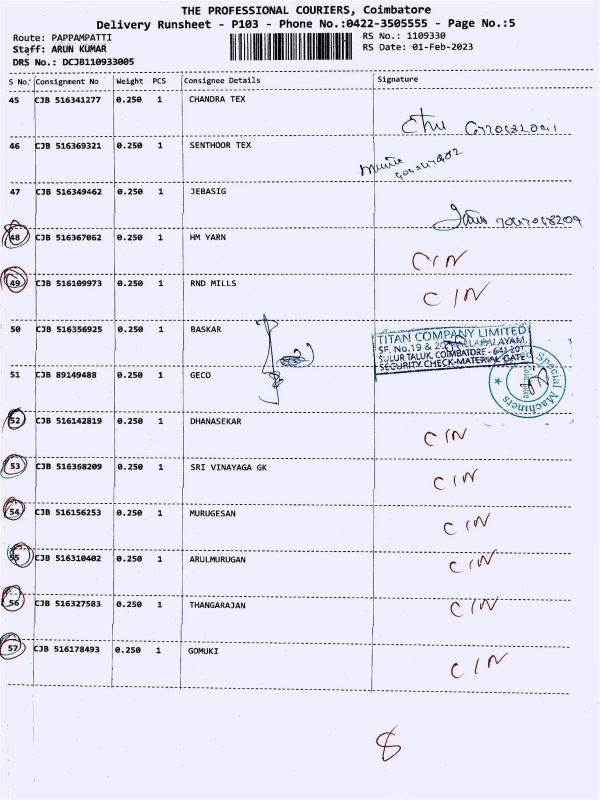 THE PROFESSIONAL COURIERS, Coimbatore
Delivery Runsheet - P103 - Phone No.:0422-3505555 - Page No.:5
Route: PAPPAMPATTI RS No.: 1109330
Staff: ARUN KUMAR RS Date: 01-Feb-2023
DRS No.: DCJB110933005
S No. Consignment No Weight PCS Consignee Details Signature
45 CJB 516341277 0.250 1 CHANDRA TEX
46 CJB 516369321 0.250 1 SENTHOOR TEX
47 CJB 516349462 0.250 1 JEBASIG
48 CJB 516367062 0.250 1 HM YARN CIN
49 CJB 516109973 0.250 1 RND MILLS CIN
50 CJB 516356925 0.250 1 BASKAR
TITAN COMPANY LIMITED
SF. No.19 &
SULUR TALUK, COIMBATORE - 641 201.
SECURITY CHECK-MATERIAL GATE
Special Machines
51 CJB 89149488 0.250 1 GECO
52 CJB 516142819 0.250 1 DHANASEKAR CIN
53 CJB 516368209 0.250 1 SRI VINAYAGA GK CIN
54 CJB 516156253 0.250 1 MURUGESAN CIN
55 CJB 516310402 0.250 1 ARULMURUGAN CIN
56 CJB 516327583 0.250 1 THANGARAJAN CIN
57 CJB 516178493 0.250 1 GOMUKI CIN
8